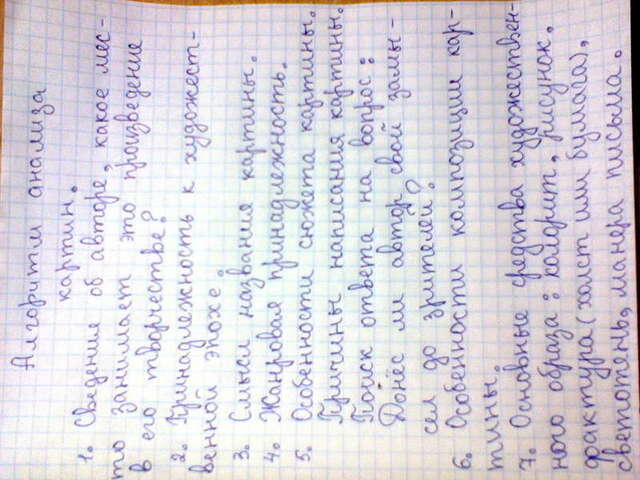 Алгоритм анализа
картин.
1. Сведение об авторе, какое мес-
то занимает это произведение
в его творчестве?
2. Принадлежность к художест-
венной эпохе.
3. Смысл названия картины.
4. Жанровая принадлежность.
5. Особенности сюжета картины.
Причины написания картины.
Поиск ответа на вопрос:
Донёс ли автор свой замы-
сел до зрителей?
6. Особенности композиции кар-
тины.
7. Основные средства художествен-
ного образа: колорит, рисунок,
фактура (холст или бумага),
светотень, манера письма.